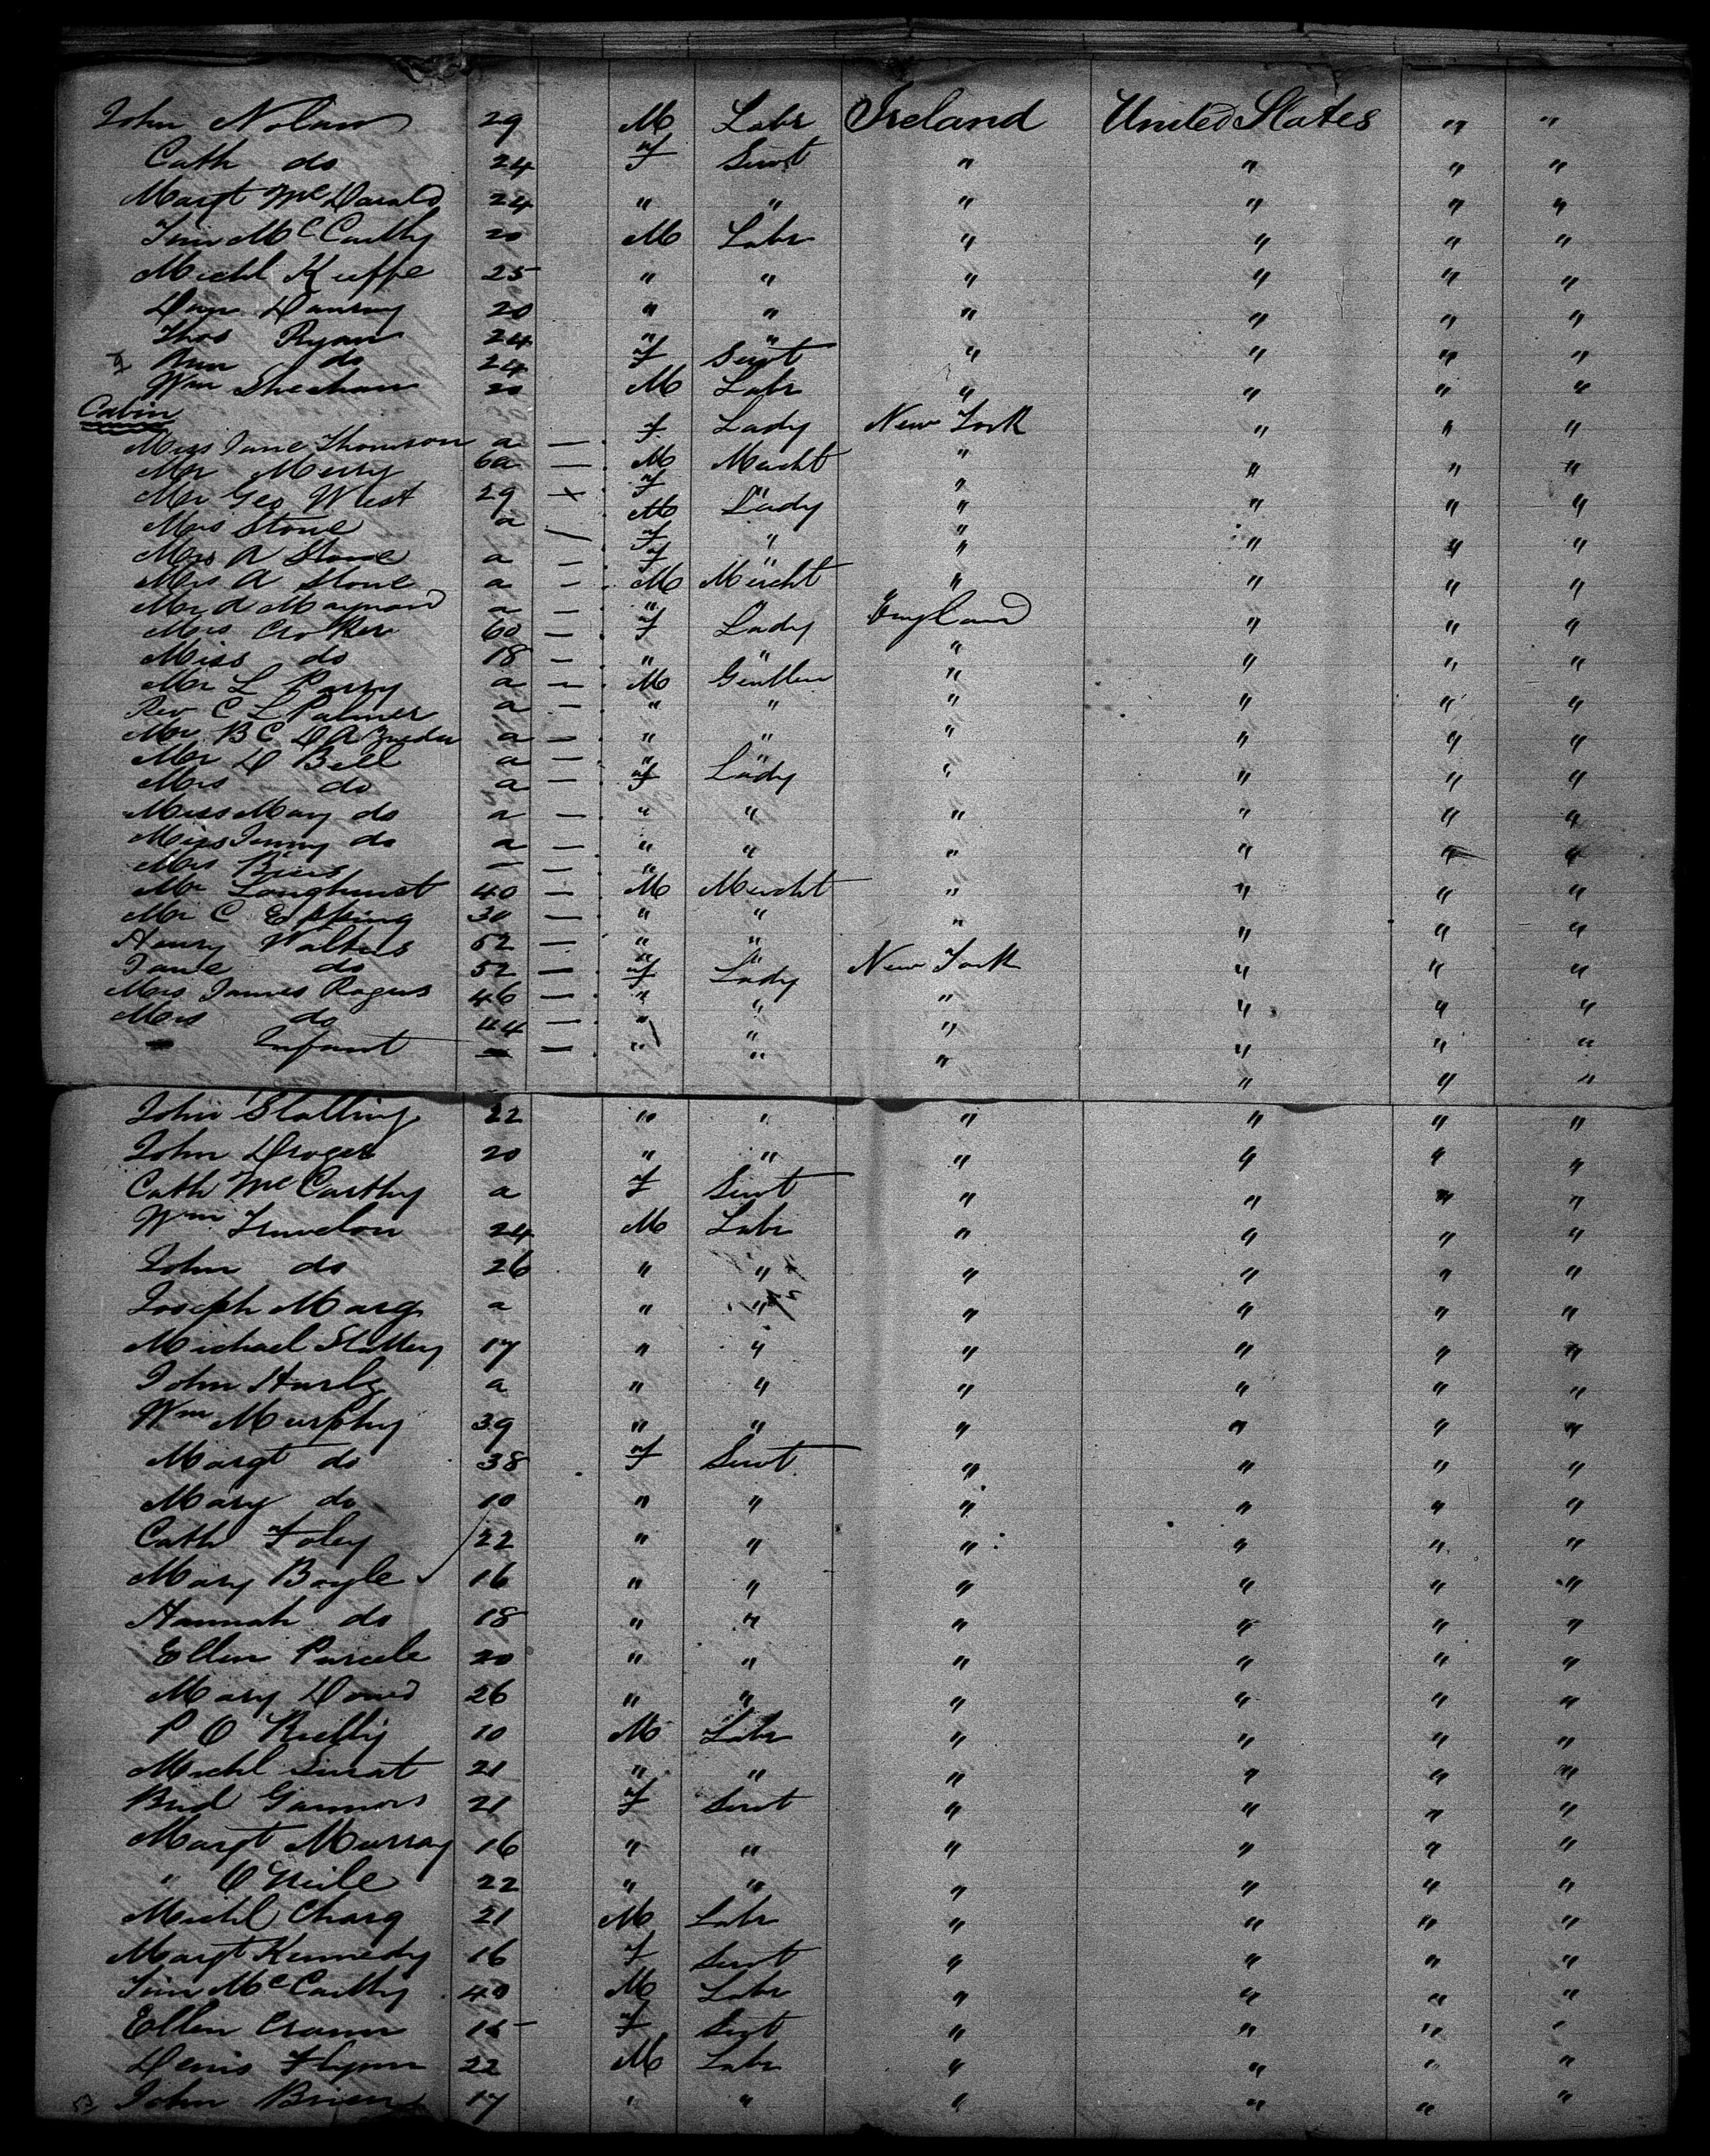 John Nolan 29 M Labr Ireland United States " "
Cath do 24 f Servt " " " "
Margt McDonald 24 " " " " " "
Tim McCarthy 20 M Labr " " " "
Michl Kieffe 25 " " " " " "
20 " " " " " "
Thos Ryan 24 " " " " " "
Ann do 24 f Servt " " " "
Wm Sheehan 20 M Labr " " " "
Cabin
Miss Jane Thomson a — f Lady New York " " "
Mr Merry 60 — M Mercht " " " "
Mr Geo West 29 x f " " " "
Mrs Stone a — M Lady " " " "
Mrs A Stone a — f " " " " "
Mrs A Stone a — M Mercht " " " "
Mr A Maynard a — " England " " "
Mrs Croker 60 — f Lady " " "
Miss do 18 — " " " " " "
Mr L Parry a — M Gentlen " " " "
Rev C L Palmer a — " " " " " "
Mr B C a — " " " " " "
Mr D Bell a — " " " "
Mrs do a — f Lady " " " "
Miss Mary do a — " " " " " "
Miss Jenny do a — " " " " " "
Mrs Biers — — " " " "
Mr Longhurst 40 — M Mercht " " " "
Mr C Epping 30 — " " " " " "
Henry Walters 52 — " " " " "
Jane do 52 — f Lady New York " " "
Mrs James Rogers 46 — " " " " " "
Mrs do 44 — " " " " " "
Infant — — " " " " " "
John Slatting 22 " " " " " "
John 20 " " " " " "
Cath McCarthy a f Servt " " " "
Wm 24 M Labr " " " "
John do 26 " " " " " "
Joseph Marg a " " " " " "
Michael Slattery 17 " " " " " "
John Hurly a " " " " " "
Wm Murphy 39 " " " " " "
Margt do 38 f Servt " " " "
Mary do 10 " " " " " "
Cath Foley 22 " " " " " "
Mary Boyle 16 " " " " " "
Hannah do 18 " " " " " "
Ellen Purcele 20 " " " " " "
Mary Dowd 26 " " " " " "
P O Reilly 10 M Labr " " " "
Michl 21 " " " " " "
Brid Gannors 21 f Servt " " " "
Margt Murray 16 " " " " " "
" O'Neile 22 " " " " " "
Michl Charg 21 M Labr " " " "
Margt Kennedy 16 f Servt " " " "
Tim McCarthy 40 M Labr " " " "
Ellen 15 f Servt " " " "
Denis Flynn 22 M Labr " " " "
John Brien 17 " " " " " "